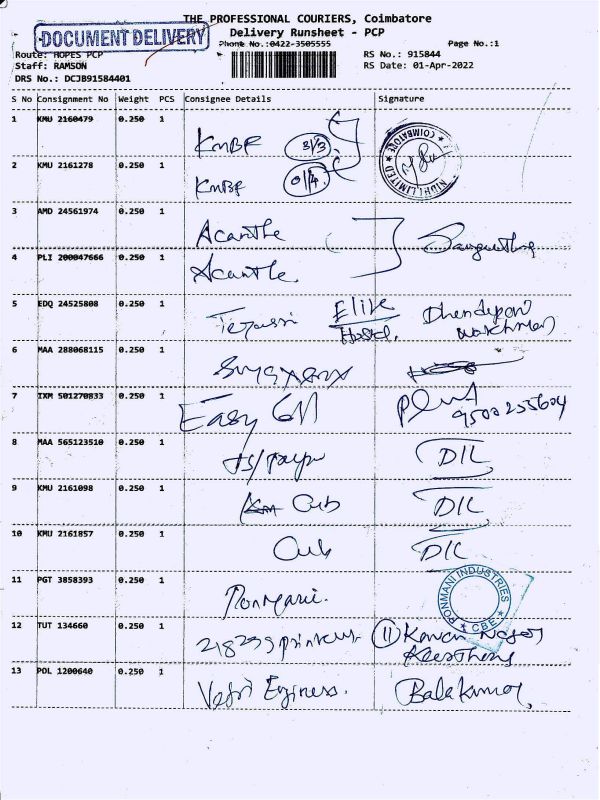 THE PROFESSIONAL COURIERS, Coimbatore
DOCUMENT DELIVERY
Delivery Runsheet - PCP
Phone No.:0422-3505555
Page No.:1
Route: HOPES PCP
RS No.: 915844
Staff: RAMSON
RS Date: 01-Apr-2022
DRS No.: DCJB91584401
S No Consignment No Weight PCS Consignee Details Signature
1 KMU 2160479 0.250 1
KMBF 31/3
COIMBATORE
NIDHI LIMITED
2 KMU 2161278 0.250 1
KMBF 01/4
3 AMD 24561974 0.250 1
Acanthe
4 PLI 200047666 0.250 1
Acantle
5 EDQ 24525808 0.250 1
Elite
Hostel.
Watchman
6 MAA 288068115 0.250 1
7 IXM 501270833 0.250 1
Easy
9500255604
8 MAA 565123510 0.250 1
DIL
9 KMU 2161098 0.250 1
Cub DIL
10 KMU 2161857 0.250 1
Cub DIL
11 PGT 3858393 0.250 1
Ponmani.
PONMANI INDUSTRIES
CBE
12 TUT 134660 0.250 1
11
Nagar
13 POL 1200640 0.250 1
Vetri Enginess. Balakumar